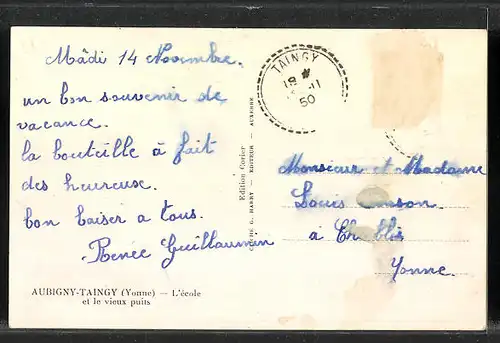 Mâdi 14 Novembre.
un bon souvenir de
vacance.
la bouteille à fait
des heureuse.
bon baiser a tous.
Renée Guillaumin
AUBIGNY-TAINGY (Yonne) — L'école
et le vieux puits
Edition Corlet
CLICHÉ G. HARRY - EDITEUR - AUXERRE
TAINGY
18
11
50
Monsieur et Madame
Louis
à Chablis
Yonne.